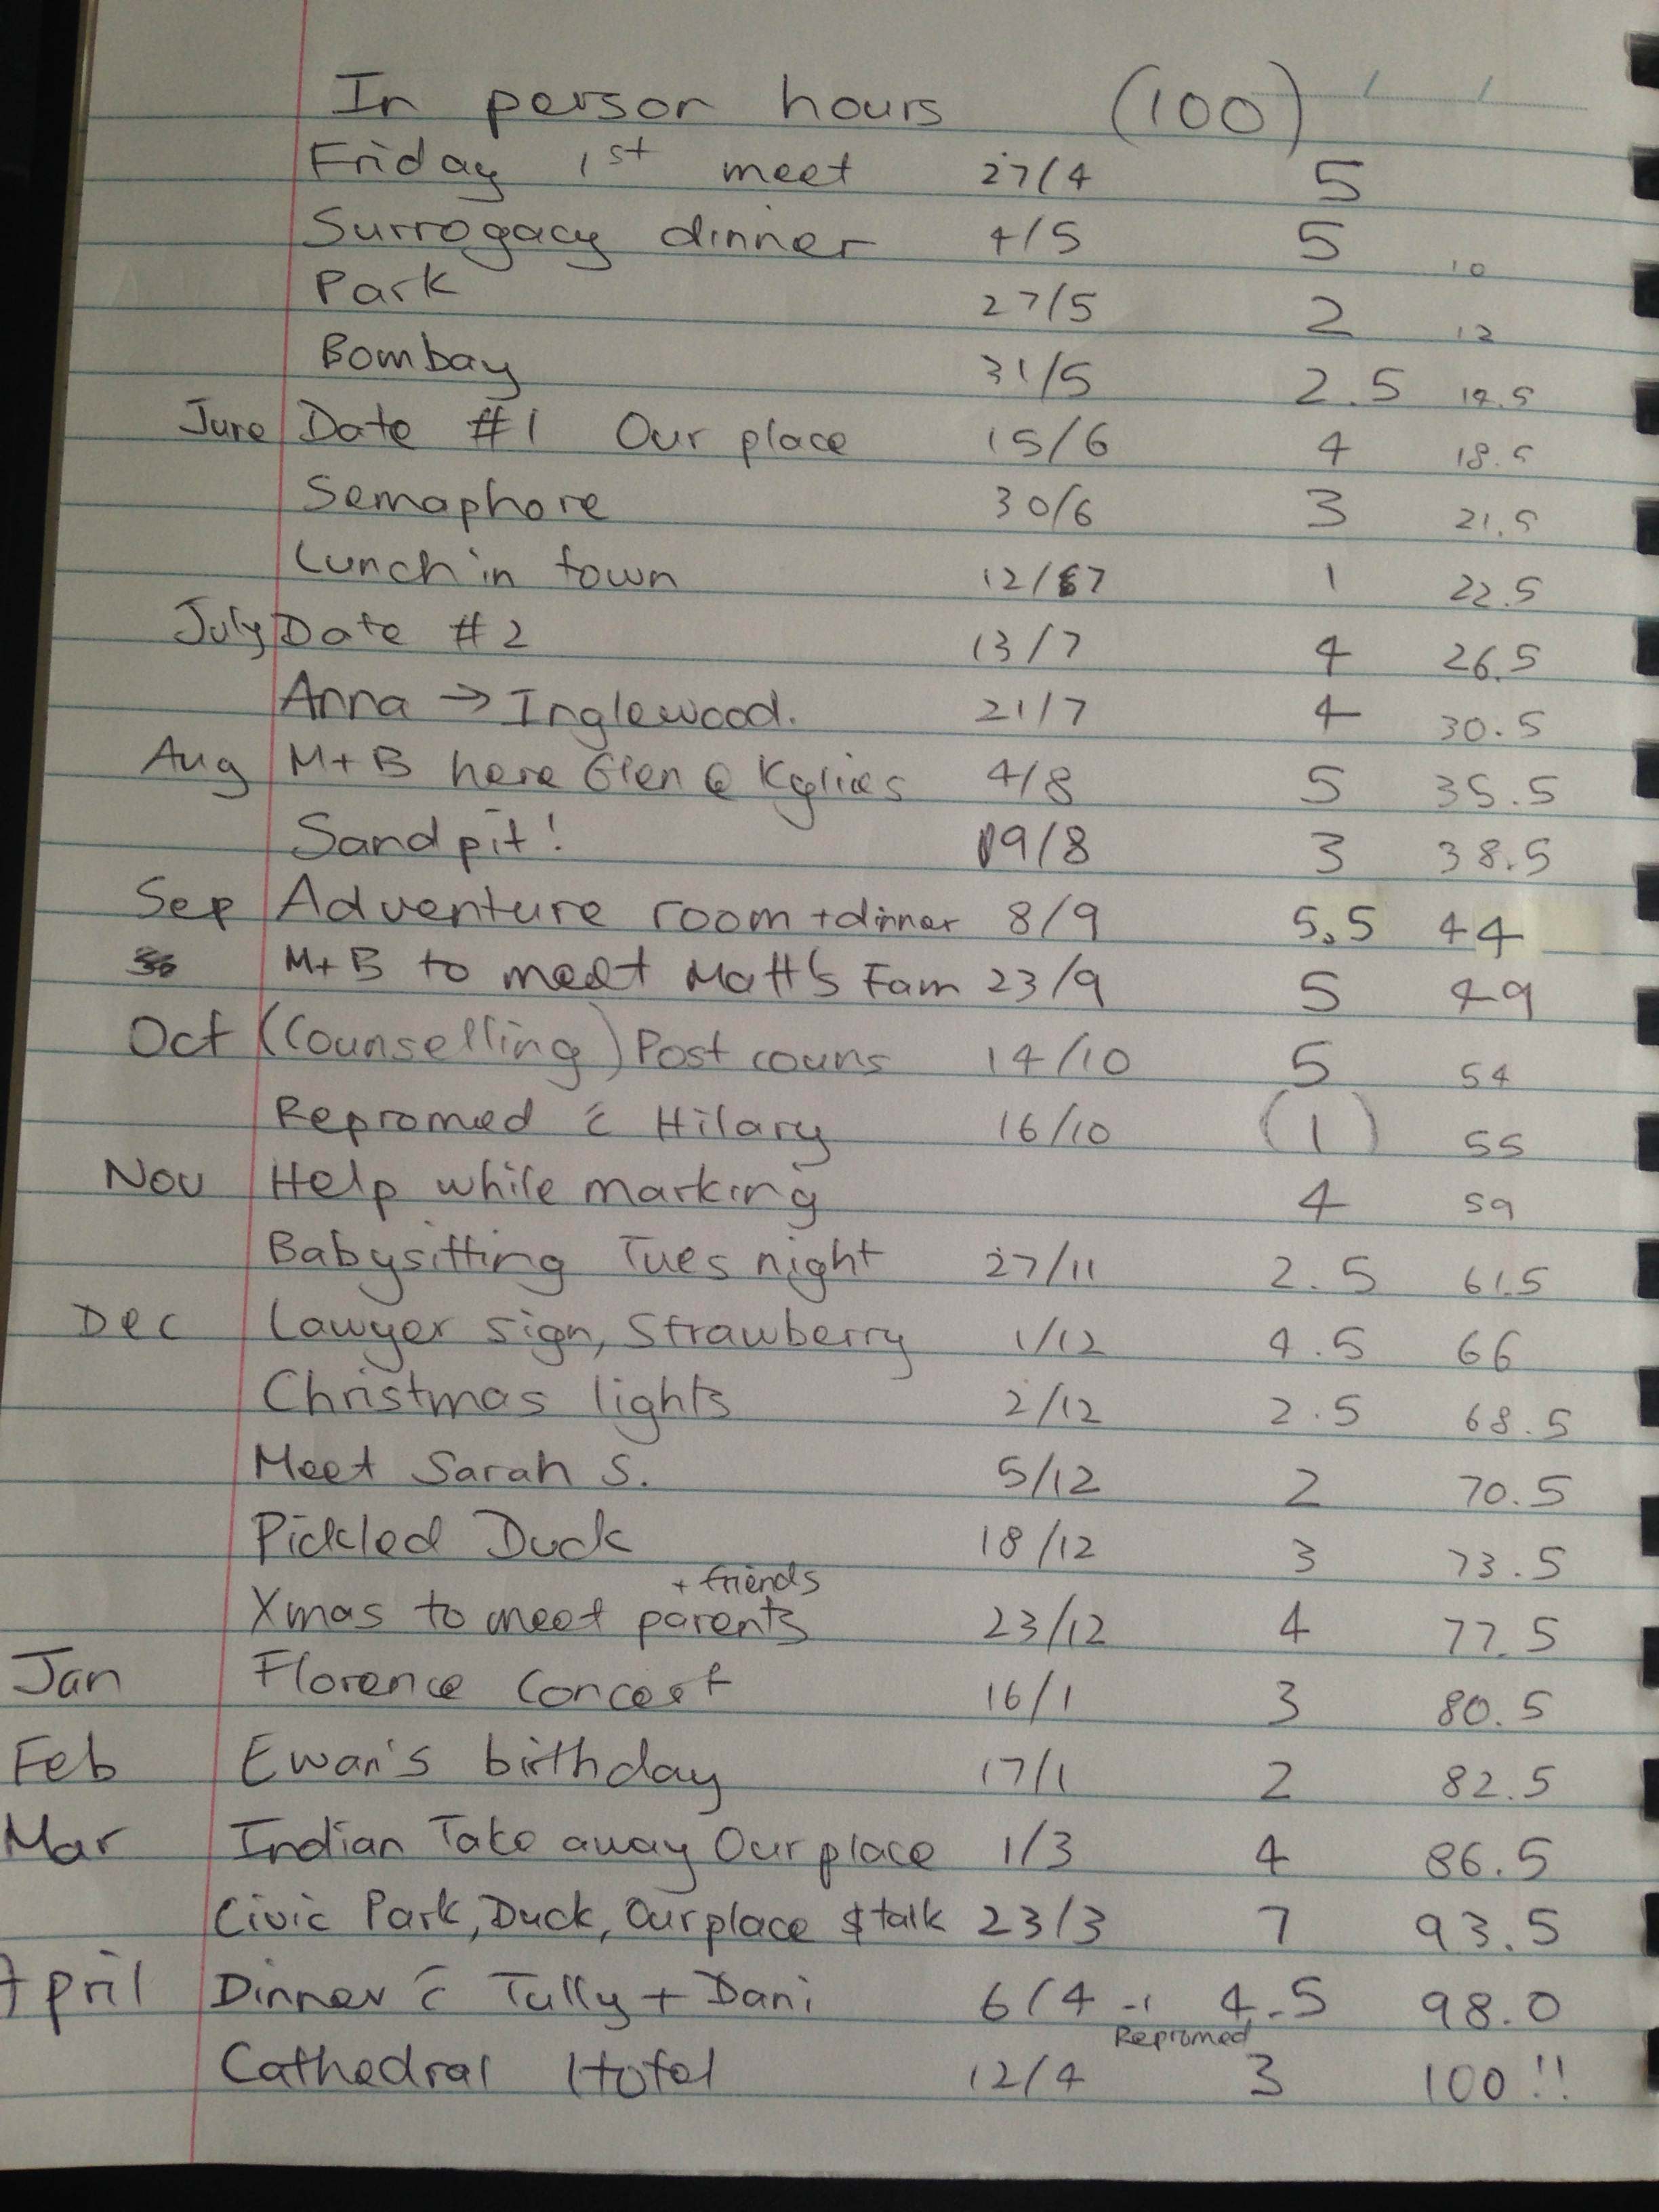 In person hours (100)
Friday 1st meet 27/4 5
Surrogacy dinner 4/5 5 10
Park 27/5 2 12
Bombay 31/5 2.5 14.5
June Date #1 Our place 15/6 4 18.5
Semaphore 30/6 3 21.5
Lunch in town 12/7 1 22.5
July Date #2 13/7 4 26.5
Anna → Inglewood. 21/7 4 30.5
Aug M+B here Glen @ Kylies 4/8 5 35.5
Sandpit! 19/8 3 38.5
Sep Adventure room + dinner 8/9 5.5 44
M+B to meet Matt's Fam 23/9 5 49
Oct (Counselling) Post couns 14/10 5 54
Repromed c̄ Hilary 16/10 (1) 55
Nov Help while marking 4 59
Babysitting Tues night 27/11 2.5 61.5
Dec Lawyer sign, Strawberry 1/12 4.5 66
Christmas lights 2/12 2.5 68.5
Meet Sarah S. 5/12 2 70.5
Pickled Duck 18/12 3 73.5
+ friends
Xmas to meet parents 23/12 4 77.5
Jan Florence Concert 16/1 3 80.5
Feb Ewan's birthday 17/1 2 82.5
Mar Indian Take away Our place 1/3 4 86.5
Civic Park, Duck, Our place & talk 23/3 7 93.5
April Dinner c̄ Tully + Dani 6/4 -1 4.5 98.0
Repromed
Cathedral Hotel 12/4 3 100!!